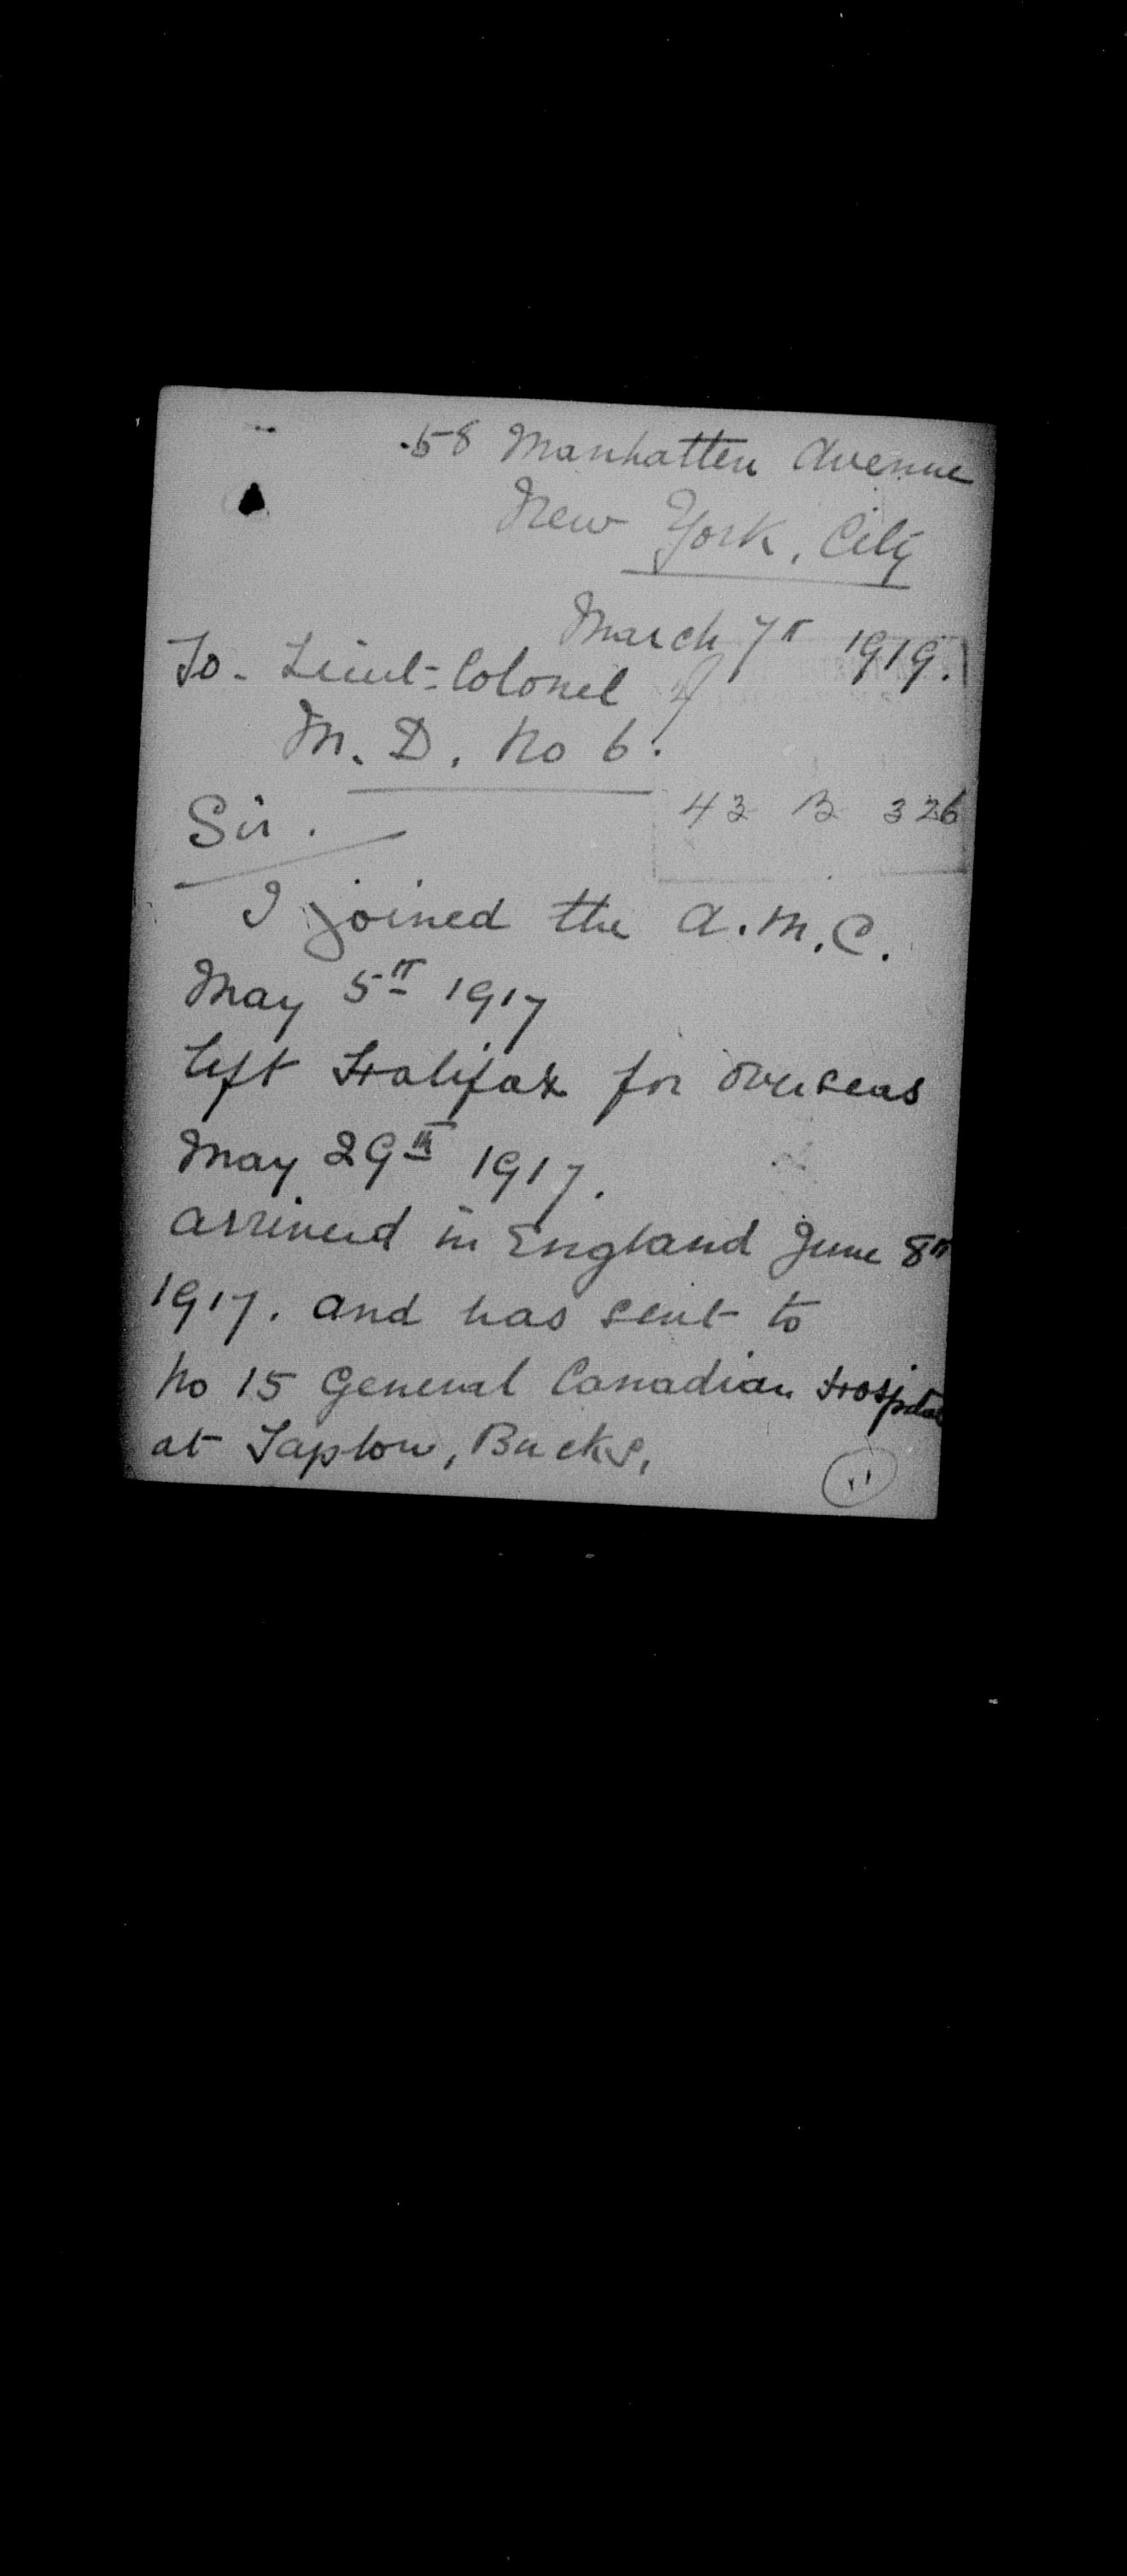 58 Manhatten Avenue
New York, City
March 7th 1919.
To- Lieut-Colonel of
M. D. No 6.
43 B 326
Sir.
I joined the A.M.C.
May 5th 1917
left Halifax for overseas
May 29th 1917.
arrived in England June 8th
1917. and was sent to
No 15 General Canadian Hospital
at Taplow, Bucks,